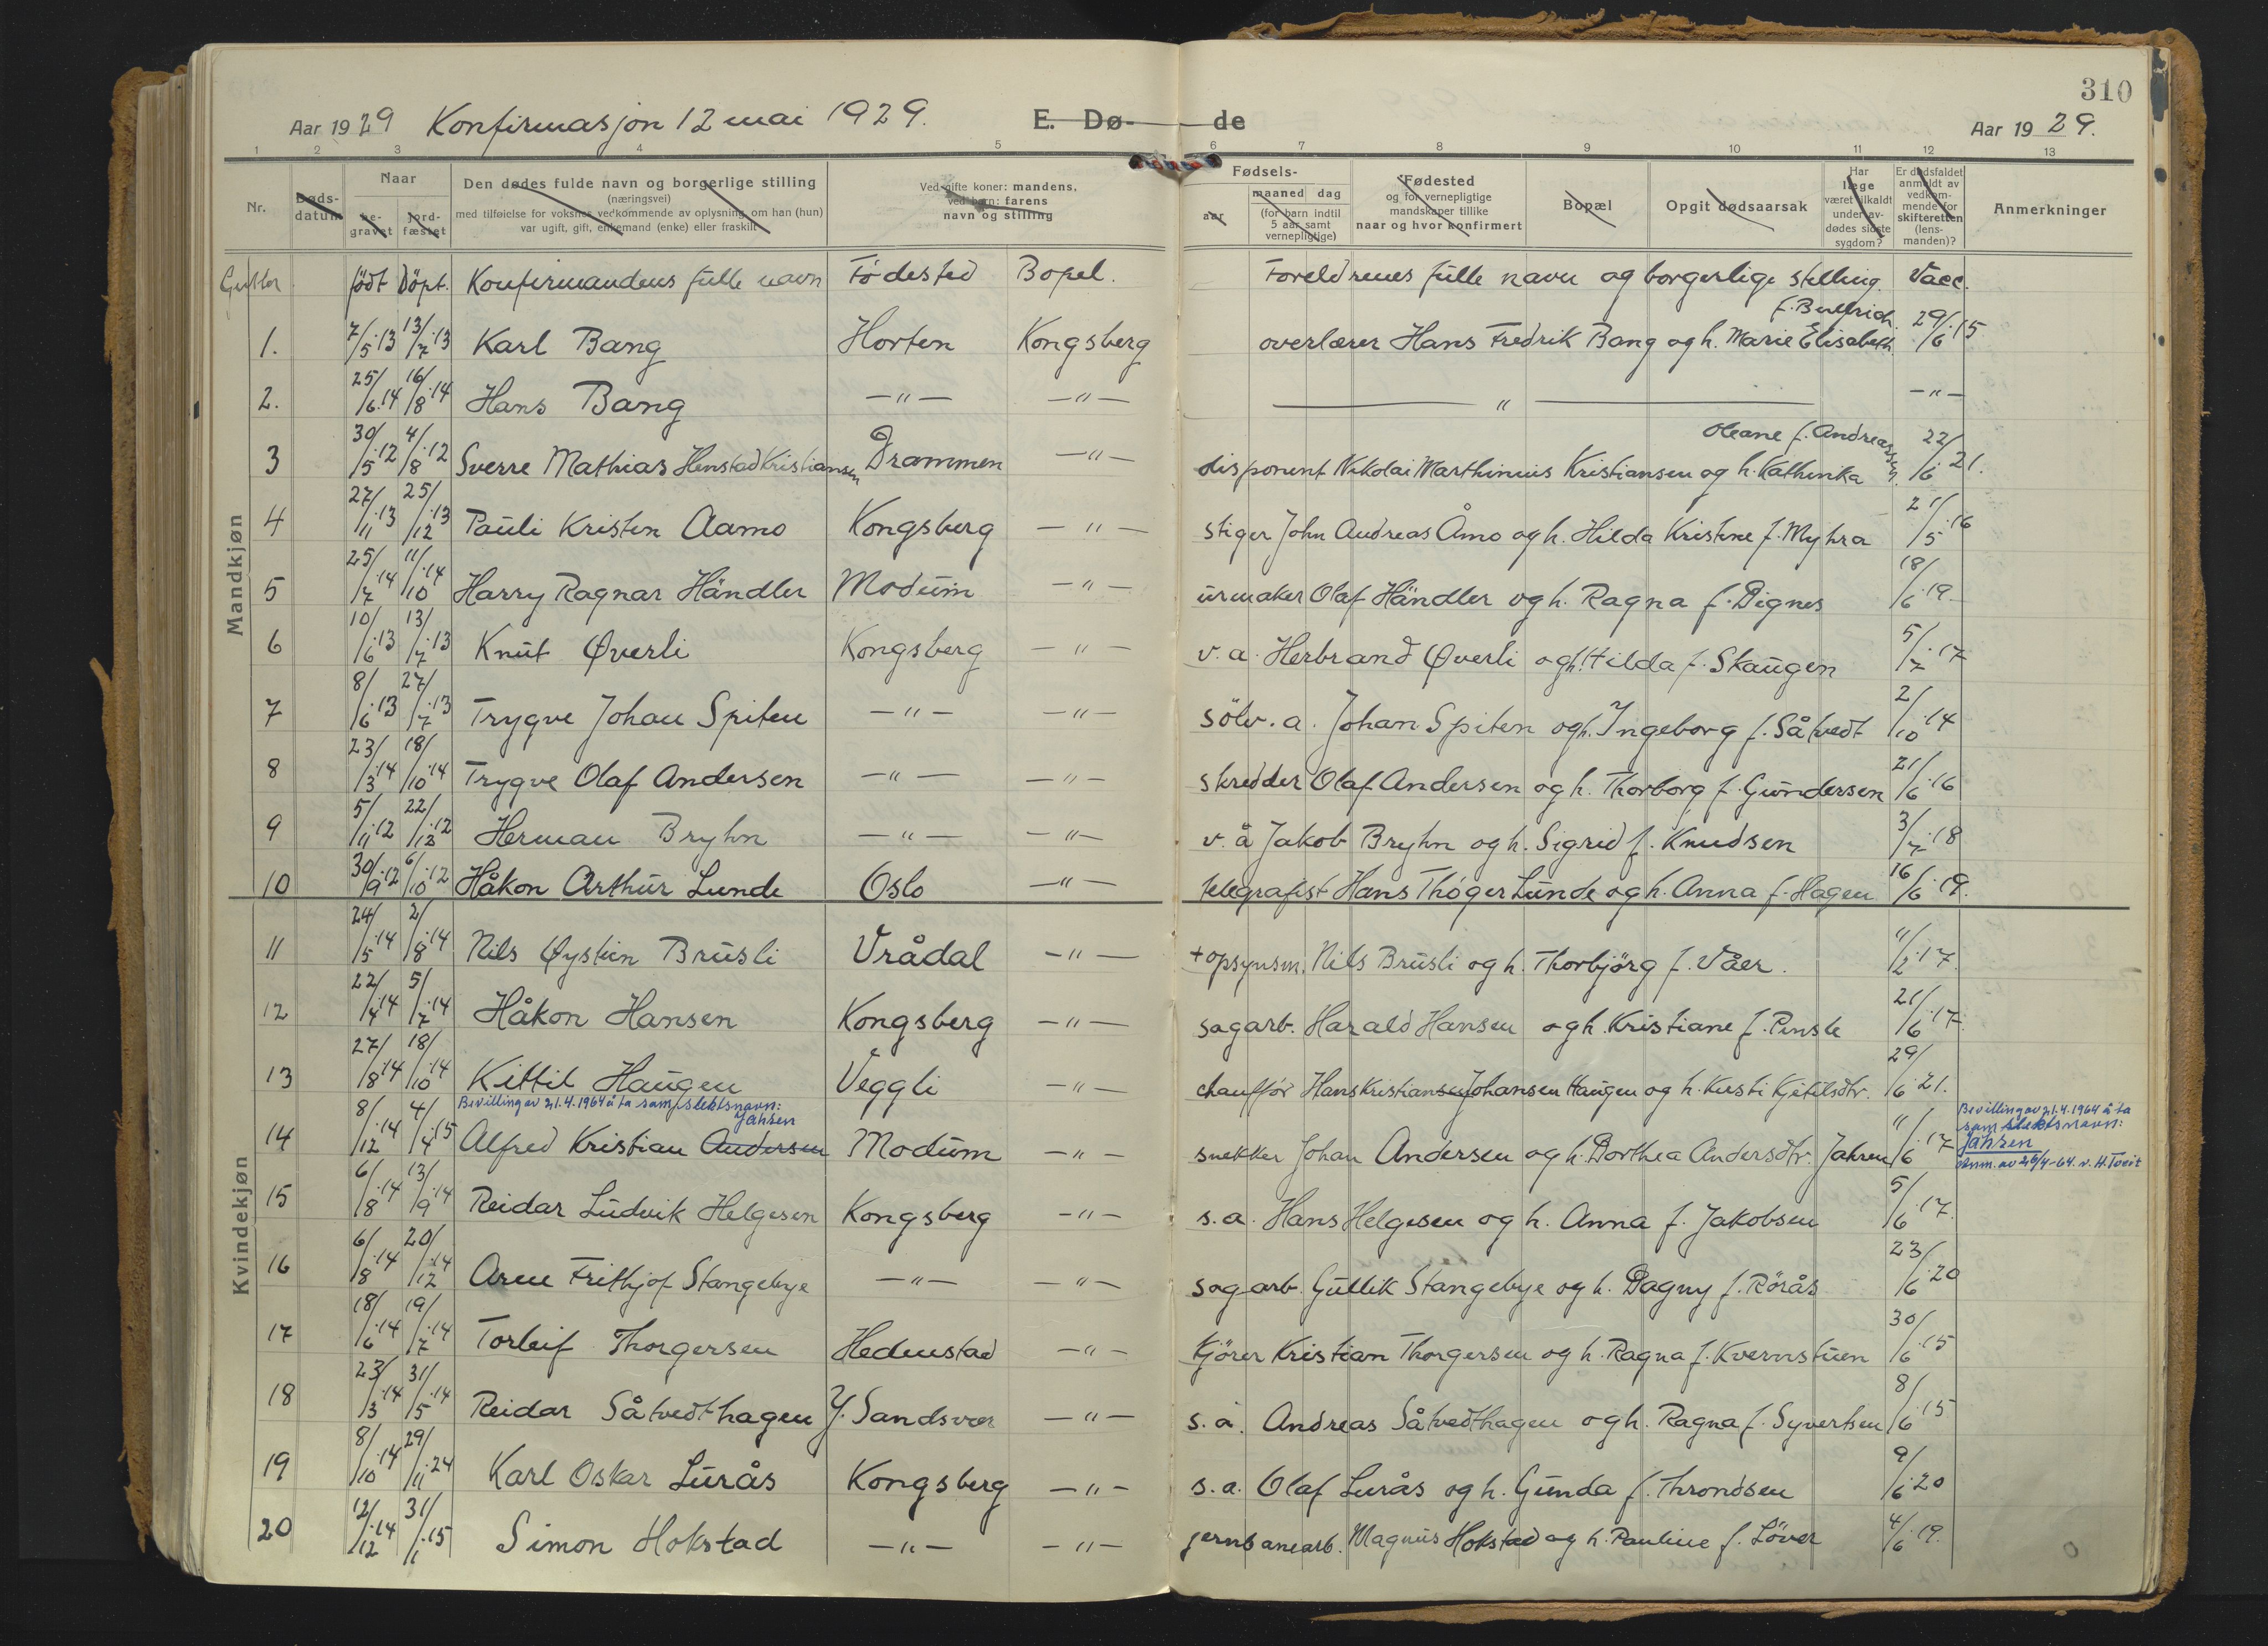 310
Aar 1929 Konfirmasjon 12 mai 1929. E. Dø- de Aar 1929.
1 2 3 4 5 6 7 8 9 10 11 12 13
Nr. Døds-datum Naar be-gravet jord-fæstet Den dødes fulde navn og borgerlige stilling (næringsvei) med tilføielse for voksnes vedkommende av oplysning, om han (hun) var ugift, gift, enkemand (enke) eller fraskilt Ved gifte koner: mandens, ved børn: farens navn og stilling Fødsels- aar maaned dag (for barn indtil 5 aar samt vernepligtige) Fødested og for vernepligtige mandskaper tillike naar og hvor konfirmert Bopæl Opgit dødsaarsak Har læge været tilkaldt under av-dødes sidste sygdom? Er dødsfaldet anmeldt av vedkom-mende for skifteretten (lens-manden)? Anmerkninger
Gutter født Döpt. Konfirmandens fulle navn Fødested Bopel. Foreldrenes fulle navn og borgerlige stilling. Vacc.
1. 7/5.13 13/7.13 Karl Bang Horten Kongsberg overlærer Hans Fredrik Bang og h. Marie Elisabeth 29/6.15
2. 25/6.14 16/8.14 Hans Bang —"— —"— —"— —"—
3 30/5.12 4/8.12 Sverre Mathias Henstad Kristiansen Drammen —"— disponent Nikolai Marthinius Kristiansen og h. Kathinka Oleane f. Andreassen. 22/6.21.
4 27/11.13 25/12.13 Pauli Kristen Aamo Kongsberg —"— stiger John Andreas Åmo og h. Hilda Kristine f. Myhra 21/5.16
5 25/7.14 11/10.14 Harry Ragnar Händler Modum —"— urmaker Olaf Händler og h. Ragna f. Dignes 18/6.19
6 10/6.13 13/7.13 Knut Øverli Kongsberg —"— v.a. Herbrand Øverli og h. Hilda f. Skaugen 5/7.17
7 8/6.13 27/7.13 Trygve Johan Spiten —"— —"— sölv.a. Johan Spiten og h. Ingeborg f. Såtvedt 2/10.14
8 23/3.14 18/10.14 Trygve Olaf Andersen —"— —"— skredder Olaf Andersen og h. Thorborg f. Gundersen 21/6.16
9 5/11.12 22/12.12 Herman Bryhn —"— —"— v.å Jakob Bryhn og h. Sigrid f. Knudsen 3/7.18
10 30/9.12 6/10.12 Håkon Arthur Lunde Oslo —"— telegrafist Hans Thöger Lunde og h. Anna f. Hagen 16/6.19.
Mandkjøn
11 24/5.14 2/8.14 Nils Øystein Brusli Vrådal —"— + opsynsm. Nils Brusli og h. Thorbjörg f. Våer. 11/2.17.
12 22/4.14 5/7.14 Håkon Hansen Kongsberg —"— sagarb. Harald Hansen og h. Kristiane f. Pinsle 21/6.17.
13 27/8.14 18/10.14 Kittil Haugen Veggli —"— chauffór Hans Kristiansen Johansen Haugen og h. Kirsti Kjetilsdtr. 29/6.21.
Bevilling av 21.4.1964 å ta som slektsnavn: Jahren
14 8/12.14 4/4.15 Alfred Kristian Andersen Modum —"— snekker Johan Andersen og h. Dorthea Andersdtr. Jahren 11/6.17
Bevilling av 21.4.1964 å ta
som slektsnavn:
Jahren
Anm. av 26/4-64. v. H. Tveit
15 6/8.14 13/9.14 Reidar Ludvik Helgesen Kongsberg —"— s.a. Hans Helgesen og h. Anna f. Jakobsen 5/6.17.
16 6/8.14 20/12.14 Arne Frithjof Stangebye —"— —"— sagarb. Gullik Stangebye og h. Dagny f. Rörås 23/6.20
17 18/6.14 19/7.14 Torleif Thorgersen Hedenstad —"— Kjörer Kristian Thorgersen og h. Ragna f. Kvernstuen 30/6.15
18 23/3.14 31/5.14 Reidar Såtvedthagen Y. Sandsvær —"— s.a. Andreas Såtvedthagen og h. Ragna f. Syvertsen 8/6.15
19 8/10.14 29/11.24 Karl Oskar Lurås Kongsberg —"— s.a. Olaf Lurås og h. Gunda f. Throndsen 9/6.20
20 12/12.14 31/1.15 Simon Hokstad —"— —"— jernbanearb. Magnus Hokstad og h. Pauline f. Löver 4/6.19.
Kvindekjøn